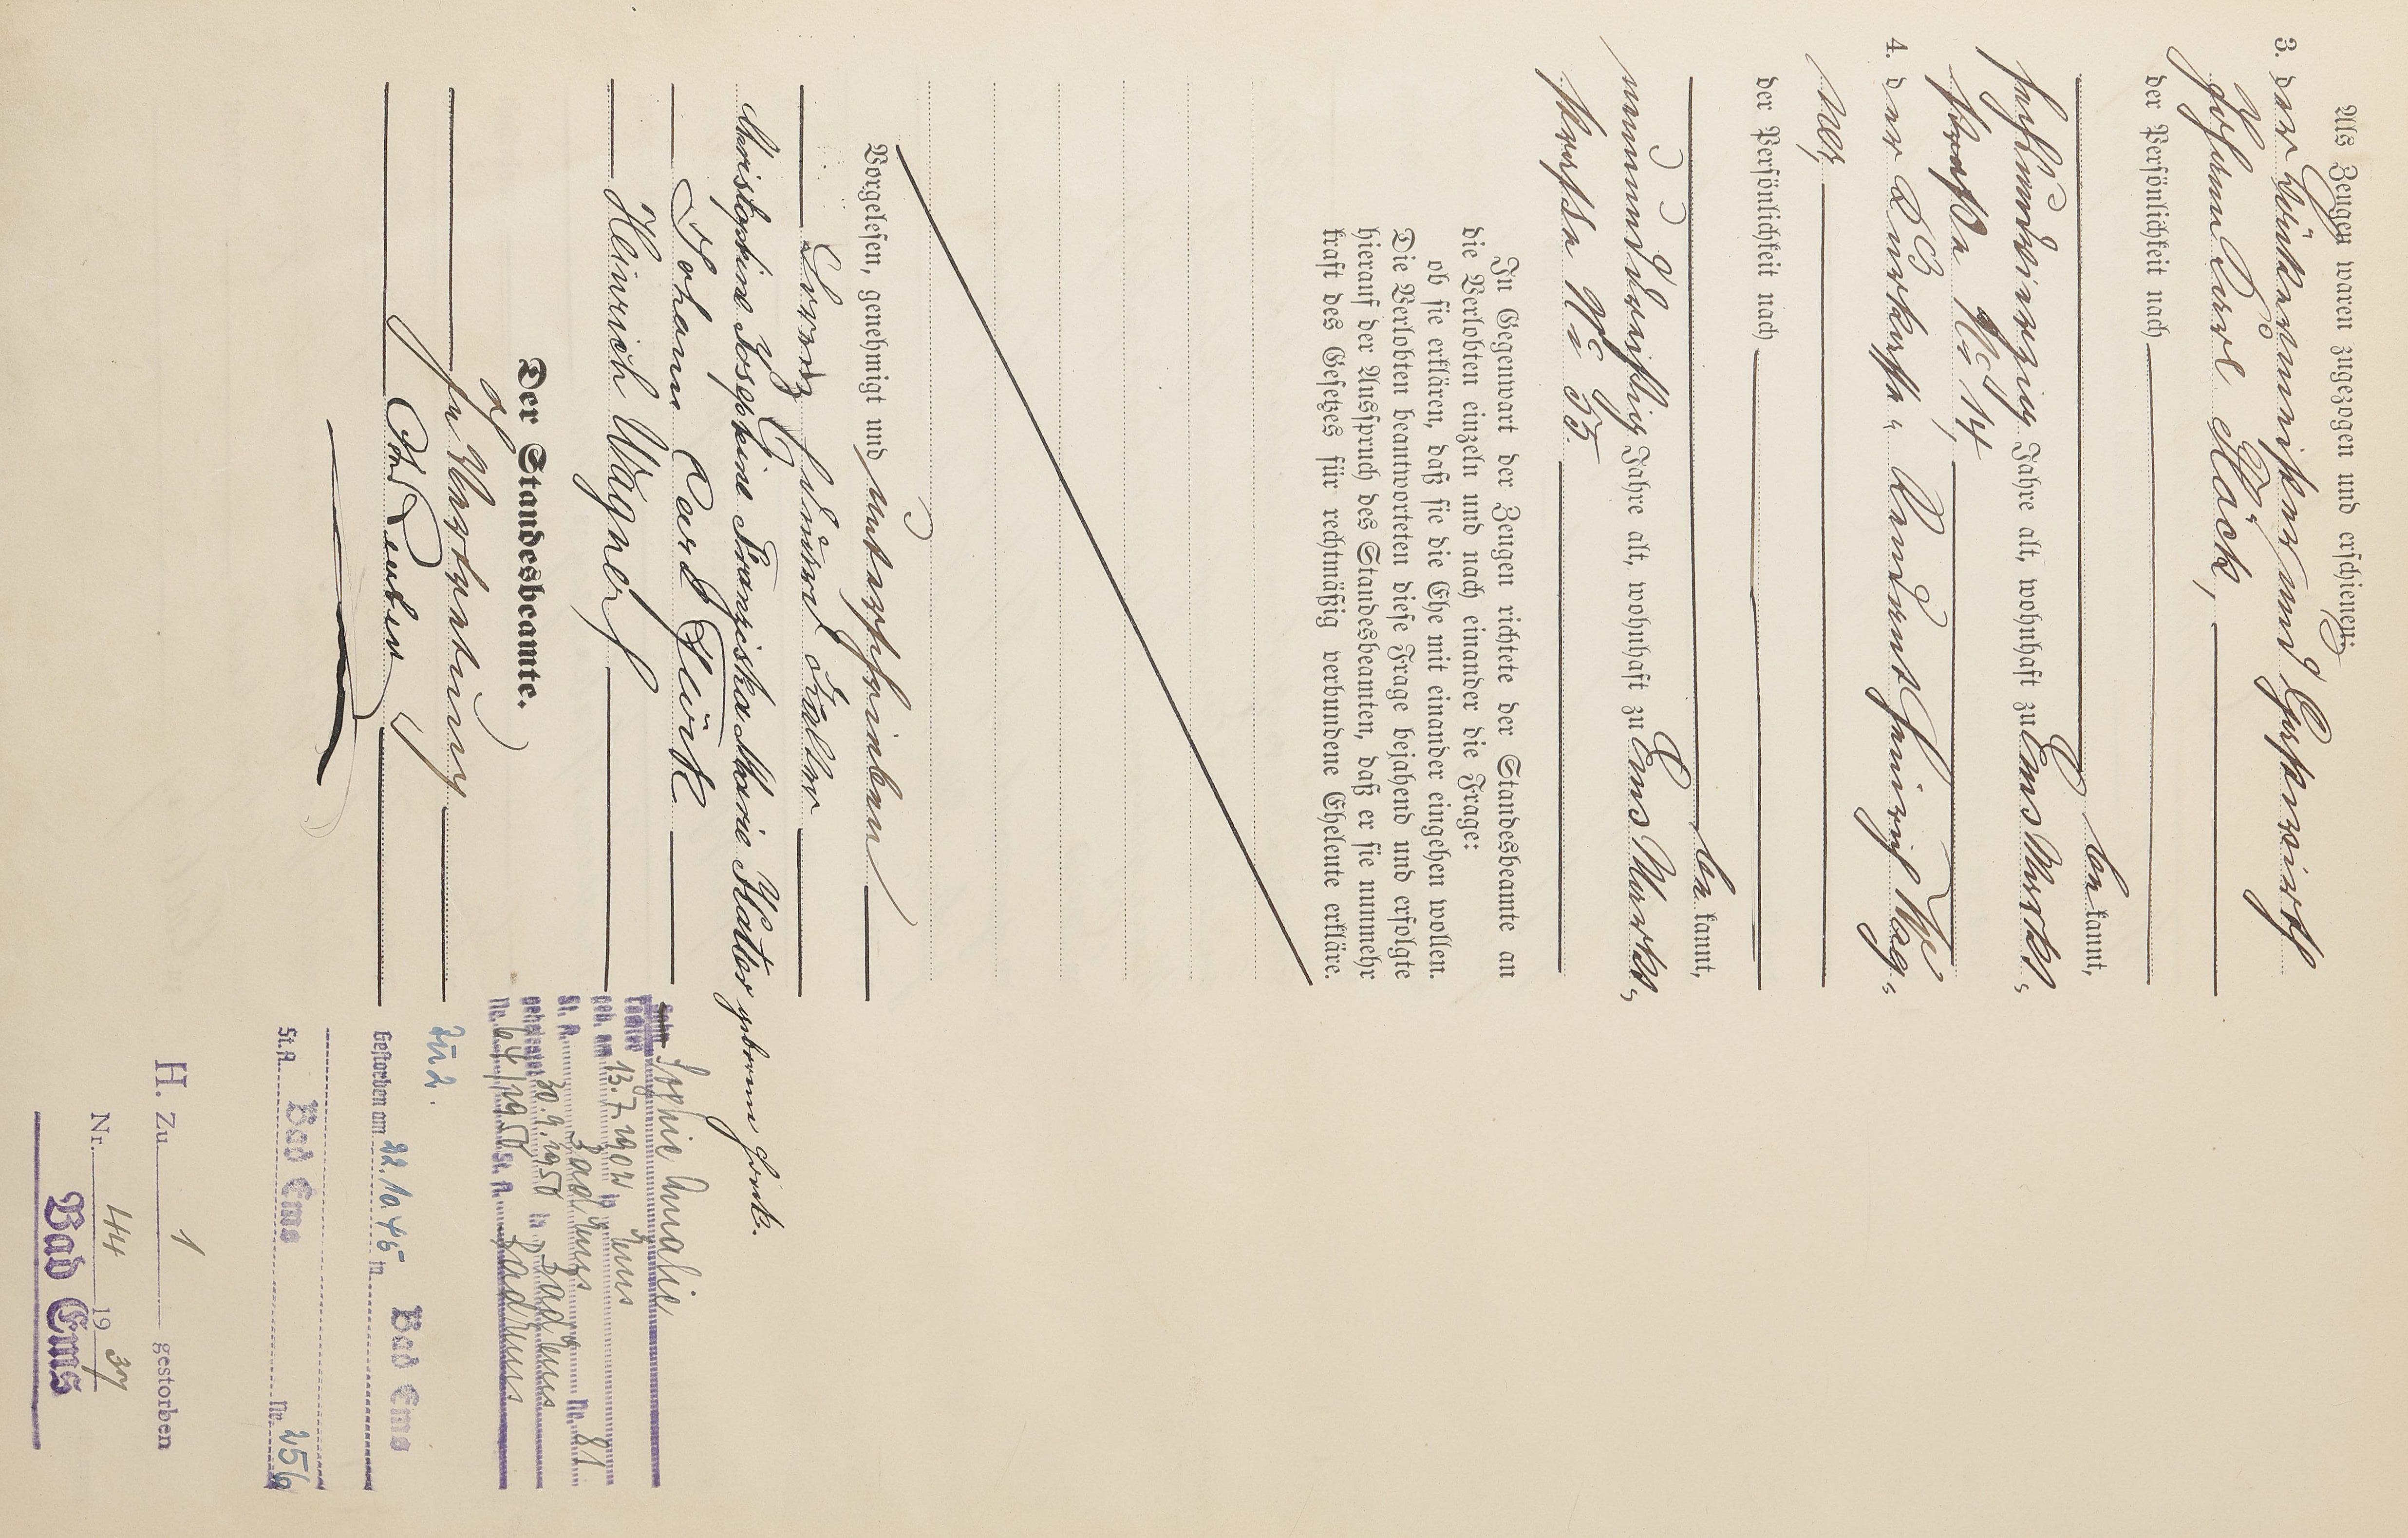 Als Zeugen waren zugezogen und erschienen:
3. der Bäckermeister und Gastwirth
Johann Carl Flöck,
der Persönlichkeit nach
bekannt,
sechsundvierzig Jahre alt, wohnhaft zu Ems Markt-
straße No 14,
4. der Buchbinder Heinrich Wag-
ner,
der Persönlichkeit nach
bekannt,
neununddreißig Jahre alt, wohnhaft zu Ems Markt-
straße No 55.
In Gegenwart der Zeugen richtete der Standesbeamte an
die Verlobten einzeln und nach einander die Frage:
ob sie erklären, daß sie die Ehe mit einander eingehen wollen.
Die Verlobten beantworteten diese Frage bejahend und erfolgte
hierauf der Ausspruch des Standesbeamten, daß er sie nunmehr
kraft des Gesetzes für rechtmäßig verbundene Eheleute erkläre.
Vorgelesen, genehmigt und unterschrieben
Eduard
Christophine Josephine Franziska Marie geborene
Johann Carl Flöck
Heinrich Wagner
Der Standesbeamte.
In Vertretung
Sophie Amalie
geb. am 13.7.1904 in Ems
St. A. Bad Ems Nr. 81
geheiratet 30.9.1950 in Bad Ems
Nr. 64/1950 St. A. Bad Ems
Zu 2.
Gestorben am 22.10.45 in Bad Ems
St.A. Bad Ems Nr. 256
H. Zu 1 gestorben
Nr. 44 1937
Bad Ems